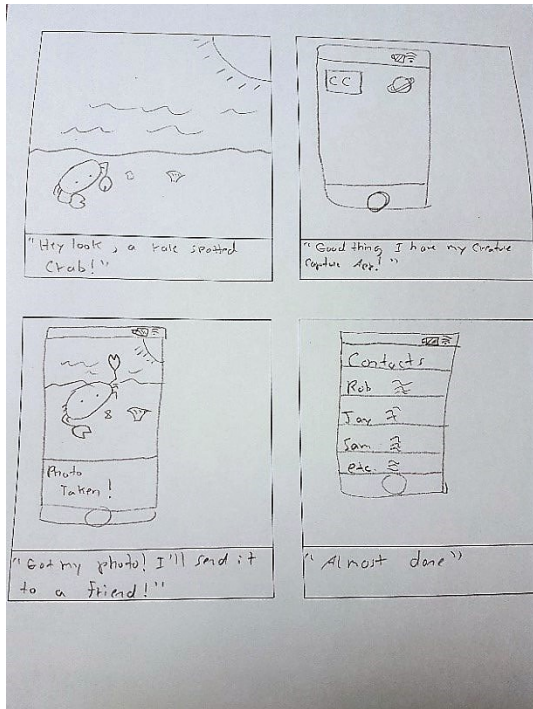 "Hey look, a rare spotted
Crab!"
CC
"Good thing I have my Creature
Capture App!"
Photo
Taken!
"Got my photo! I'll send it
to a friend!"
Contacts
Rob
Jay
Sam
etc.
"Almost done"